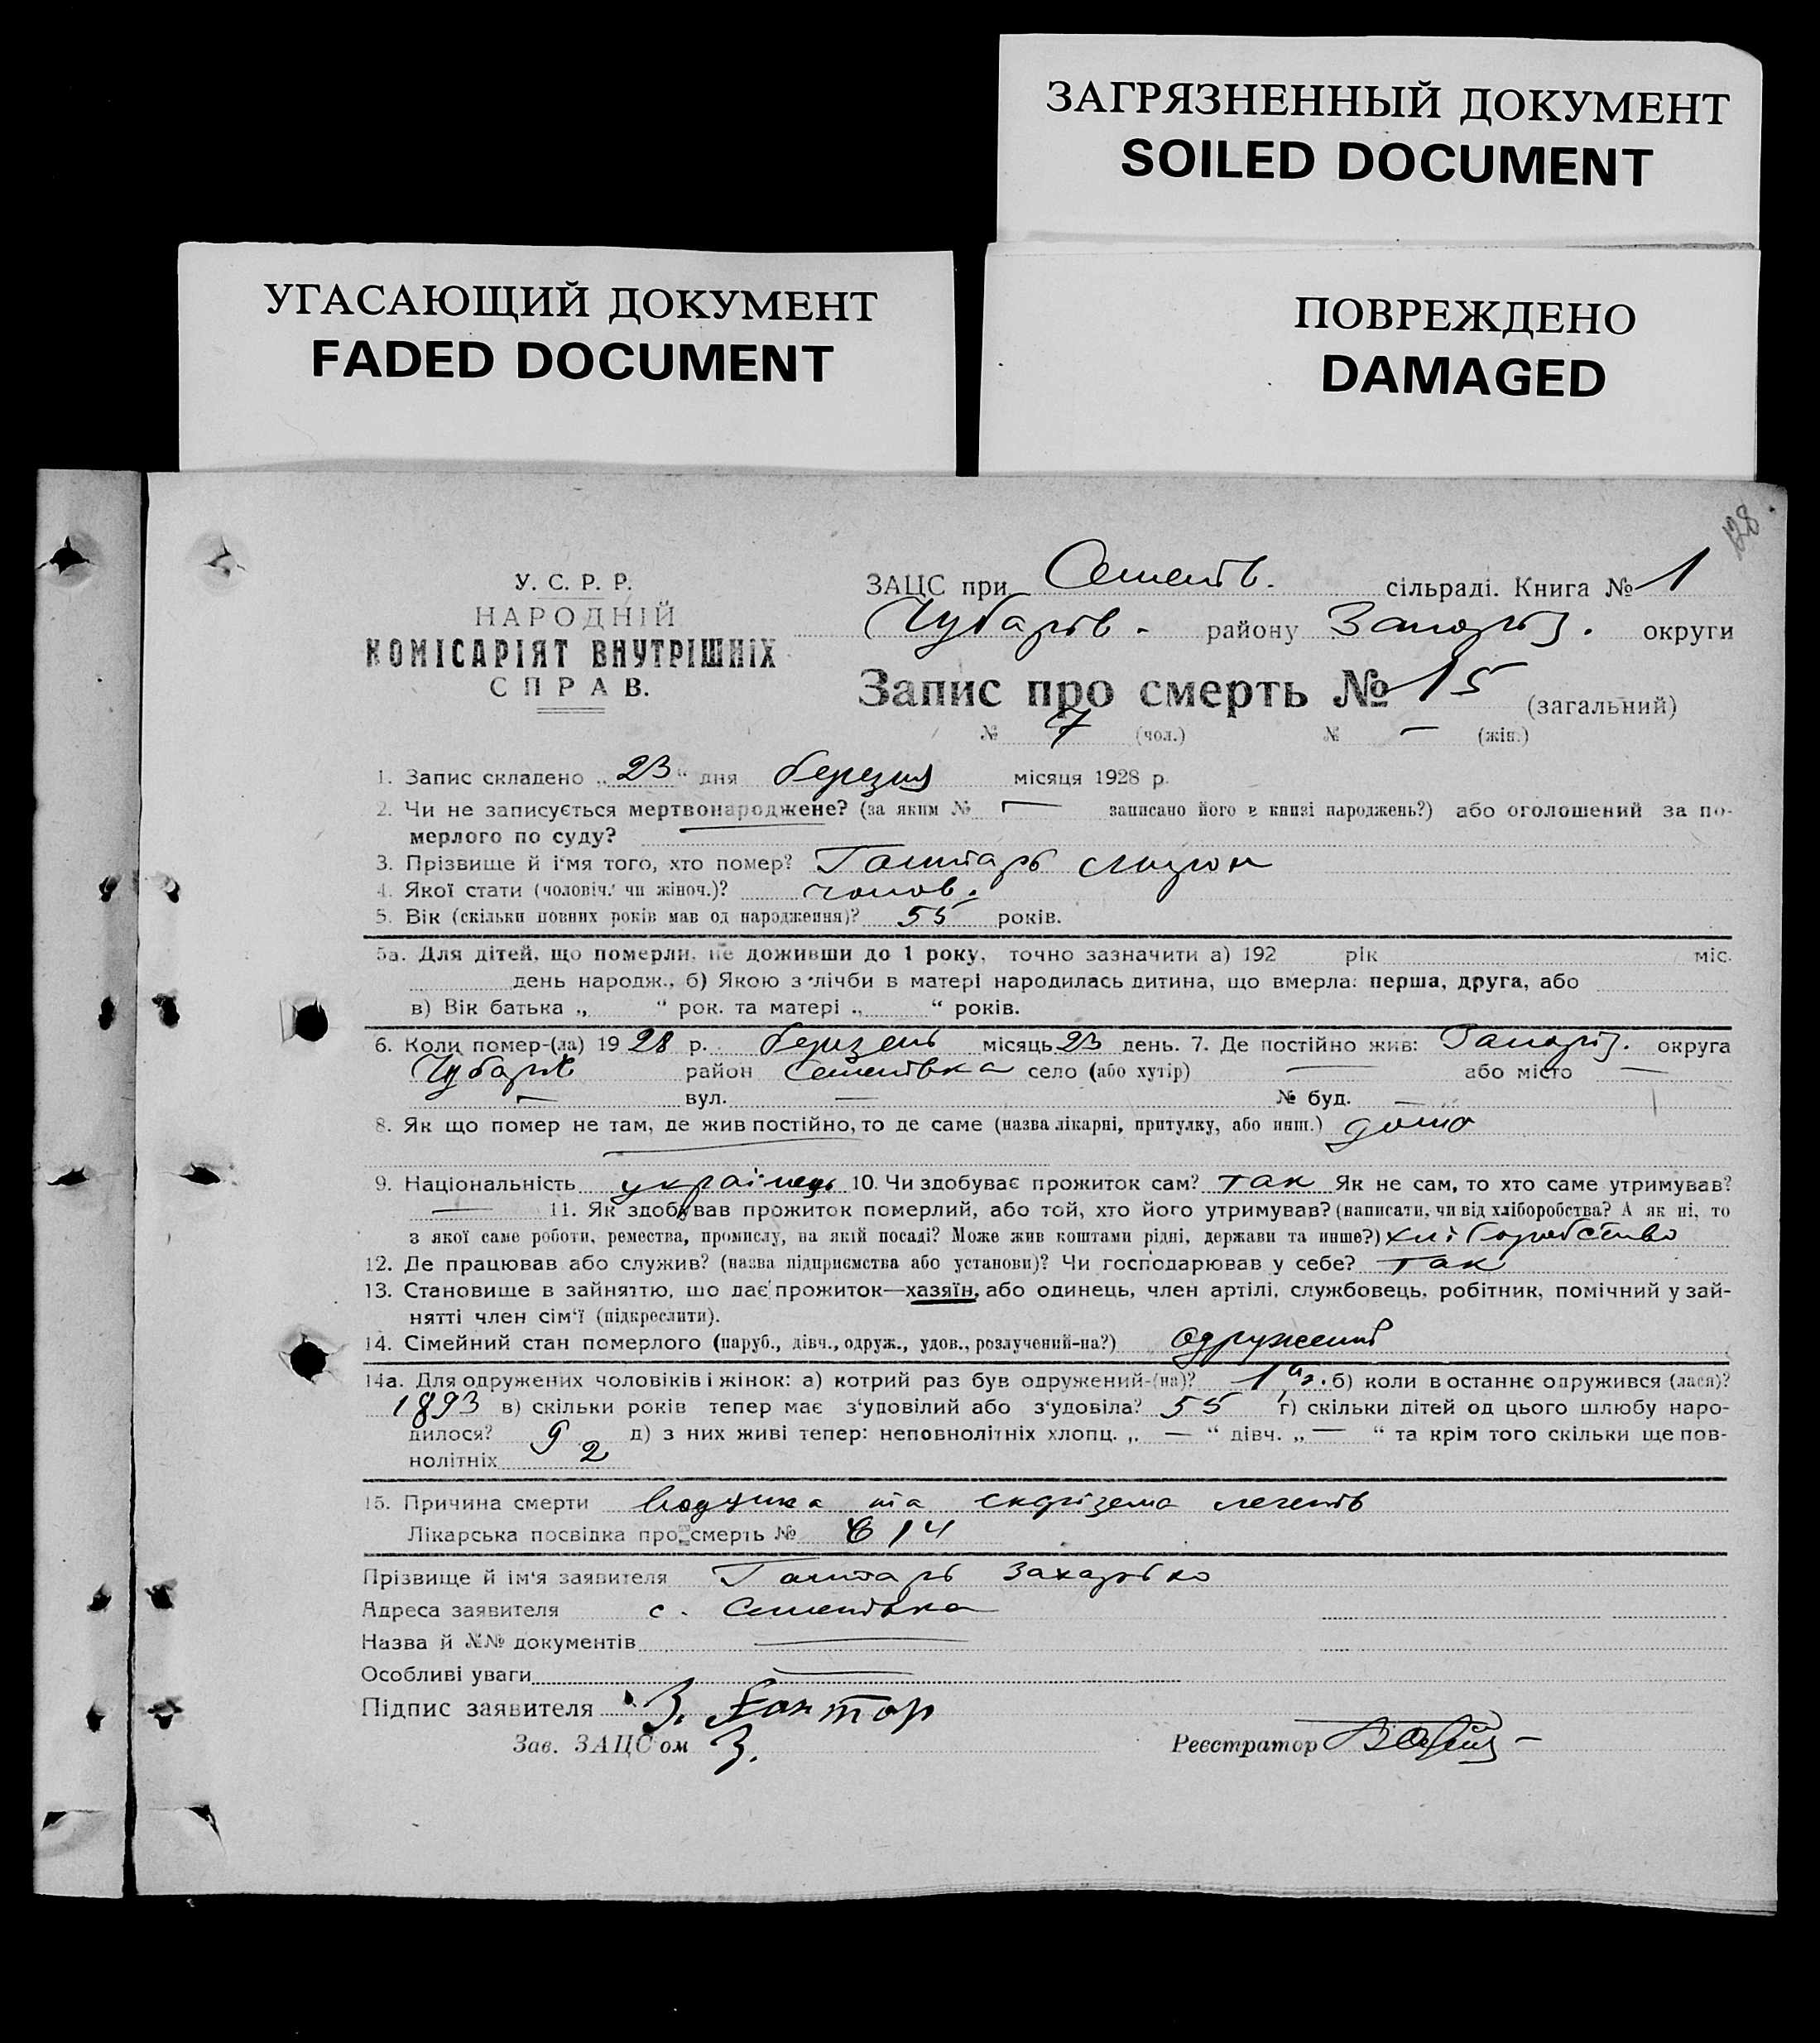 ЗАГРЯЗНЕННЫЙ ДОКУМЕНТ
SOILED DOCUMENT
УГАСАЮЩИЙ ДОКУМЕНТ
FADED DOCUMENT
ПОВРЕЖДЕНО
DAMAGED
128.
У. С. Р. Р.
НАРОДНІЙ
КОМІСАРІЯТ ВНУТРІШНІХ
СПРАВ.
ЗАЦС при Семенів. сільраді. Книга № 1
Чубарів. району Запоріз. округи
Запис про смерть № 15 (загальний)
№ 7 (чол.) № — (жін.)
1. Запис складено „23“ дня березня місяця 1928 р.
2. Чи не записується мертвонароджене? (за яким № — записано його в книзі народжень?) або оголошений за по-
мерлого по суду?
3. Прізвище й і'мя того, хто помер? Гонтарь Мирон
4. Якої стати (чоловіч. чи жіноч.)? чолов.
5. Вік (скільки повних років мав од народження)? 55 років.
5а. Для дітей, що померли, не доживши до 1 року, точно зазначити а) 192 рік міс.
день народж., б) Якою з лічби в матері народилась дитина, що вмерла: перша, друга, або
в) Вік батька „ “ рок. та матері „ “ років.
6. Коли помер-(ла) 1928 р. березень місяць 23 день. 7. Де постійно жив: Запоріз. округа
Чубарів район Семенівка село (або хутір) — або місто —
— вул. — № буд. —
8. Як що помер не там, де жив постійно, то де саме (назва лікарні, притулку, або инш.) дома
9. Національність українець 10. Чи здобуває прожиток сам? так Як не сам, то хто саме утримував?
— 11. Як здобував прожиток померлий, або той, хто його утримував? (написати, чи від хліборобства? А як ні, то
з якої саме роботи, ремества, промислу, на якій посаді? Може жив коштами рідні, держави та инше?) хліборобство
12. Де працював або служив? (назва підприємства або установи)? Чи господарював у себе? так
13. Становище в зайняттю, що дає прожиток—хазяїн, або одинець, член артілі, службовець, робітник, помічний у зай-
нятті член сім'ї (підкреслити).
14. Сімейний стан померлого (паруб., дівч., одруж., удов., розлучений-на?) одружений
14а. Для одружених чоловіків і жінок: а) котрий раз був одружений-(на)? 1 б) коли в останнє одружився (лася)?
1893 в) скільки років тепер має з'уповілий або з'удовіла? 55 г) скільки дітей од цього шлюбу наро-
дилося? 9 д) з них живі тепер: неповнолітніх хлопц. „ — “ дівч. „ — “ та крім того скільки ще пов-
нолітніх 2
15. Причина смерти та легенів
Лікарська посвідка про смерть № 614
Прізвище й ім'я заявителя Гонтарь
Адреса заявителя с. Семенівка
Назва й №№ документів —
Особливі уваги —
Підпис заявителя З. Гонтар
Зав. ЗАЦС'ом З.
Реєстратор